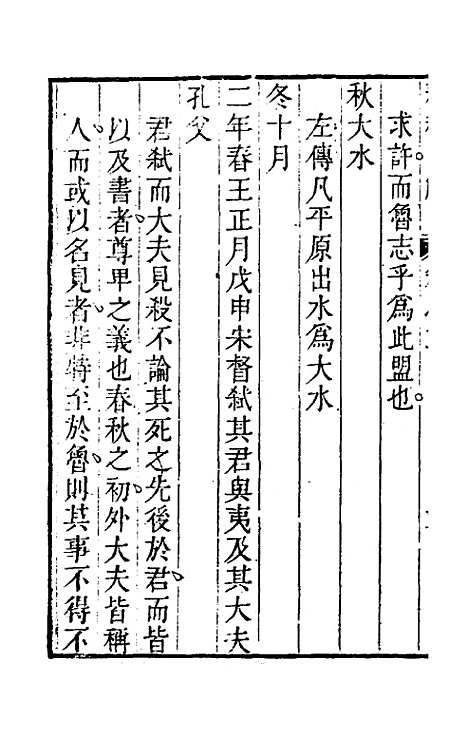 求許而魯志乎爲此盟也。
秋大水
左傳凡平原出水爲大水
冬十月
二年春王正月戊申宋督弒其君與夷及其大夫
孔父
君弒而大夫見殺不論其死之先後於君、而皆
以及書者、尊卑之義也春秋之初、外大夫皆稱
人、而或以名見者、非特至於魯、則其事不得不